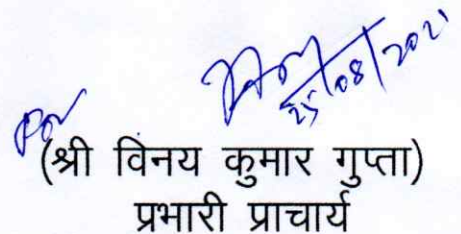 25/08/2021
(श्री विनय कुमार गुप्ता)
प्रभारी प्राचार्य